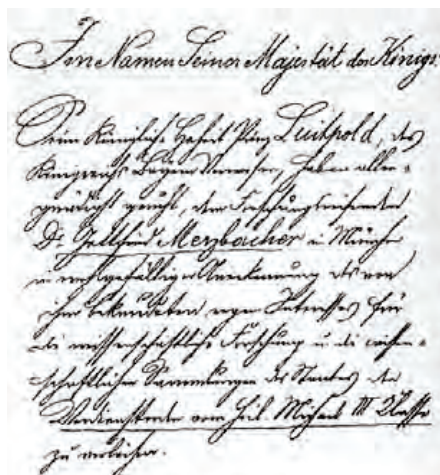 Im Namen Seiner Majestät des Königs.
Seine Königliche Hoheit Prinz Luitpold, des
Königreichs Bayern Verweser, haben aller-
gnädigst geruht, dem Forschungsreisenden
Dr. Gottfried Merzbacher in München
in wohlgefälliger Anerkennung des von
ihm bekundeten regen Interesses für
die wissenschaftliche Forschung u. die wissen-
schaftlichen Sammlungen des Staates den
Verdienstorden vom Heil. Michael III Classe
zu verleihen.